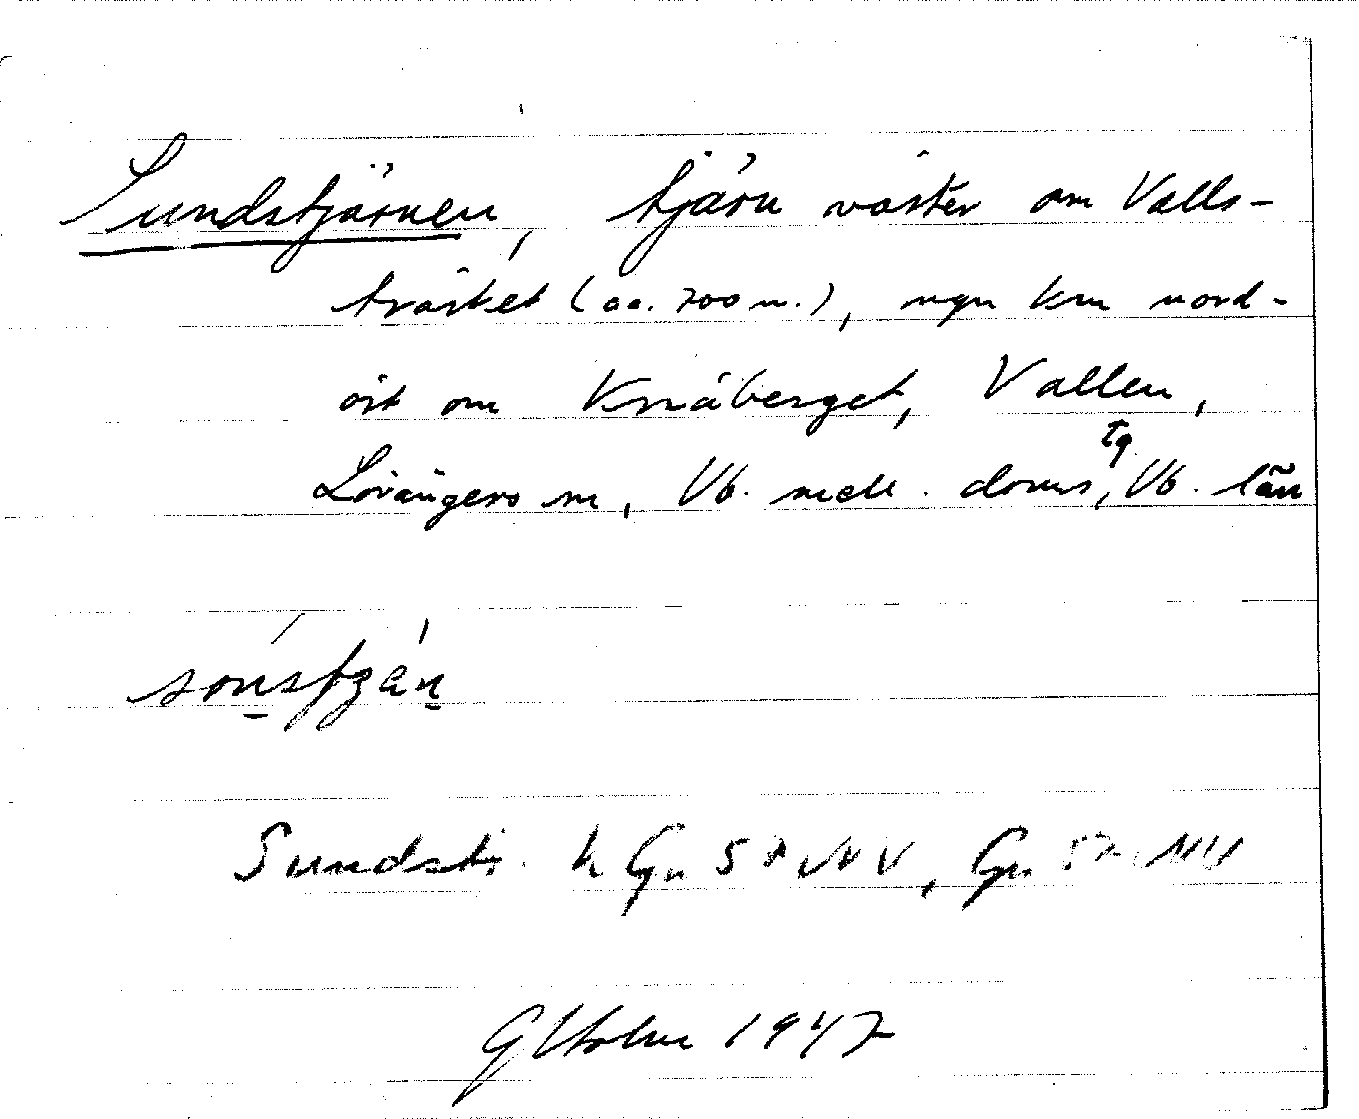 Sundstjärnen, tjärn väster om Valls-
träsket (ca. 700 m.), ngn km nord-
öst om Knäberget, Vallen,
Lövångers sn, Vb. mell. doms tg, Vb. län
Sundstj. h Gn 57 NV, Gn 57 NV
G Holm 1947